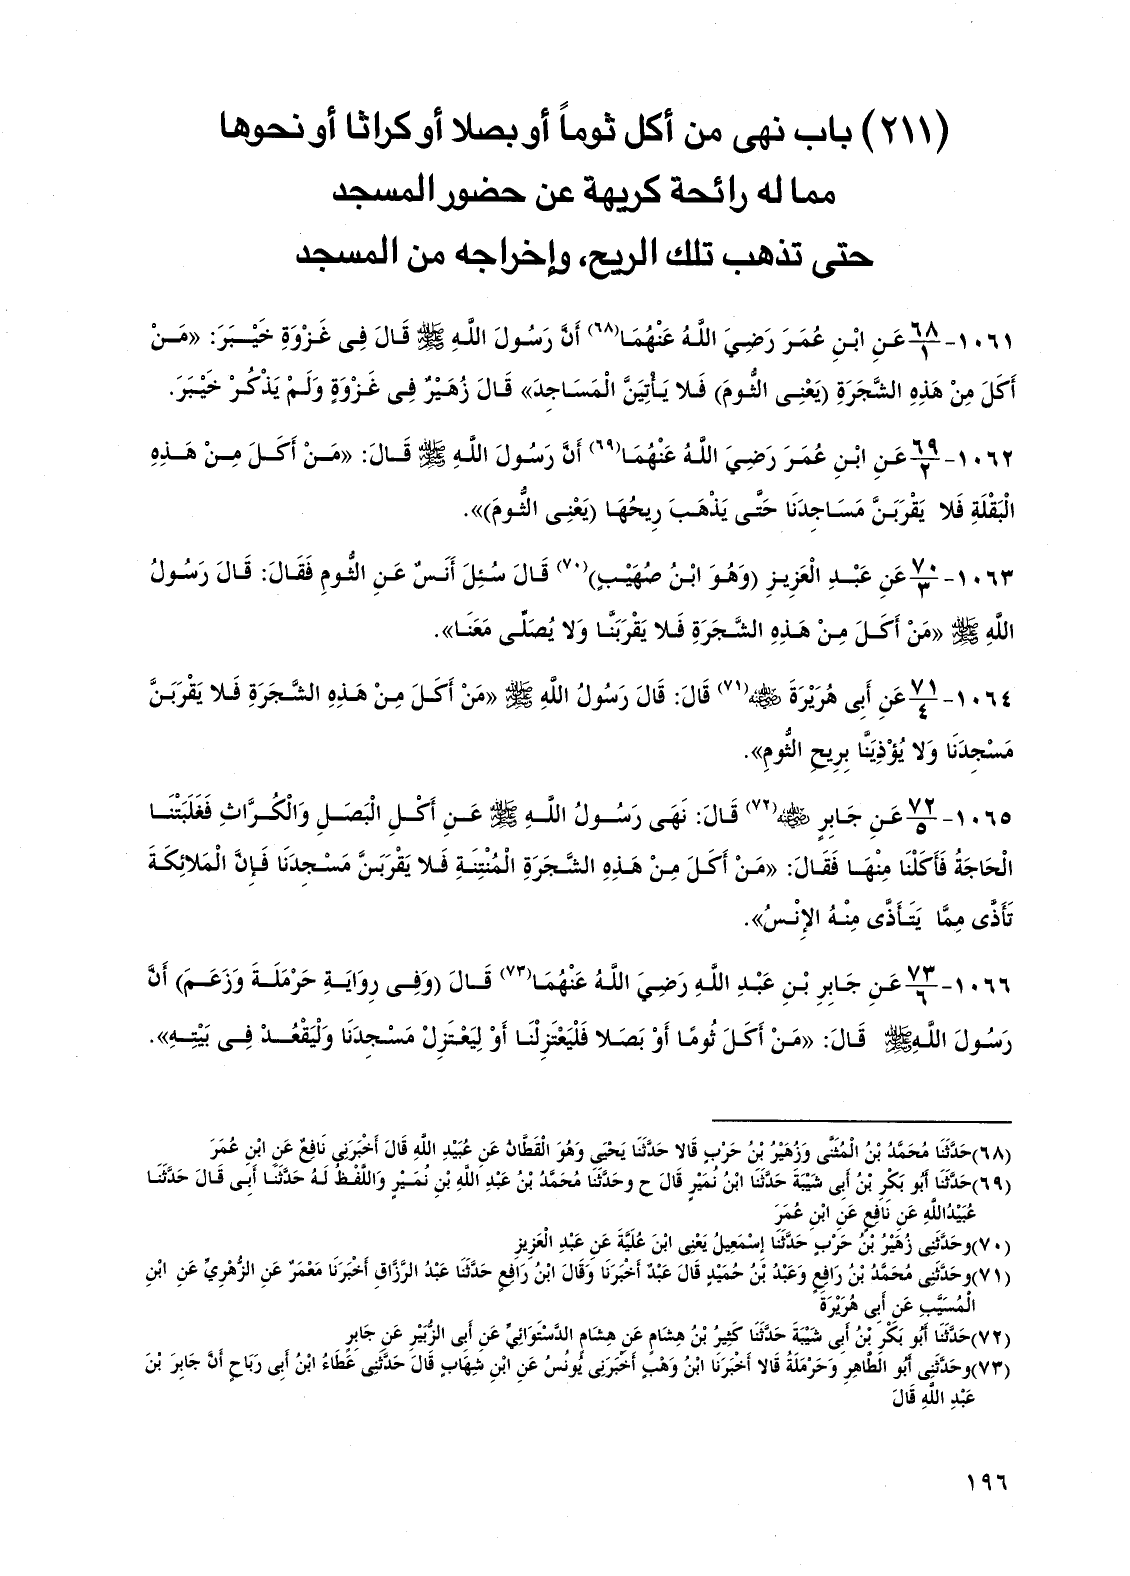 (٢١١) باب نهى من أكل ثوماً أو بصلا أو كراثا أو نحوها
مما له رائحة كريهة عن حضور المسجد
حتى تذهب تلك الريح، وإخراجه من المسجد
١٠٦١- ٦٨/١ عَنِ ابْنِ عُمَرَ رَضِيَ اللَّهُ عَنْهُمَا(٦٨) أَنَّ رَسُولَ اللَّهِ ﷺ قَالَ فِى غَزْوَةِ خَيْبَرَ: «مَنْ
أَكَلَ مِنْ هَذِهِ الشَّجَرَةِ (يَعْنِى الثُّومَ) فَلا يَأْتِيَنَّ الْمَسَاجِدَ» قَالَ زُهَيْرٌ فِى غَزْوَةٍ وَلَمْ يَذْكُرْ خَيْبَرَ.
١٠٦٢- ٦٩/٢ عَنِ ابْنِ عُمَرَ رَضِيَ اللَّهُ عَنْهُمَا(٦٩) أَنَّ رَسُولَ اللَّهِ ﷺ قَالَ: «مَنْ أَكَلَ مِنْ هَذِهِ
الْبَقْلَةِ فَلا يَقْرَبَنَّ مَسَاجِدَنَا حَتَّى يَذْهَبَ رِيحُهَا (يَعْنِى الثُّومَ)».
١٠٦٣- ٧٠/٣ عَنِ عَبْدِ الْعَزِيزِ (وَهُوَ ابْنُ صُهَيْبٍ)(٧٠) قَالَ سُئِلَ أَنَسٌ عَنِ الثُّومِ فَقَالَ: قَالَ رَسُولُ
اللَّهِ ﷺ «مَنْ أَكَلَ مِنْ هَذِهِ الشَّجَرَةِ فَلا يَقْرَبَنَّا وَلا يُصَلِّى مَعَنَا».
١٠٦٤- ٧١/٤ عَنِ أَبِى هُرَيْرَةَ ﷺ(٧١) قَالَ: قَالَ رَسُولُ اللَّهِ ﷺ «مَنْ أَكَلَ مِنْ هَذِهِ الشَّجَرَةِ فَلا يَقْرَبَنَّ
مَسْجِدَنَا وَلا يُؤْذِيَنَّا بِرِيحِ الثُّومِ».
١٠٦٥- ٧٢/٥ عَنِ جَابِرٍ ﷺ(٧٢) قَالَ: نَهَى رَسُولُ اللَّهِ ﷺ عَنِ أَكْلِ الْبَصَلِ وَالْكُرَّاثِ فَغَلَبَتْنَا
الْحَاجَةُ فَأَكَلْنَا مِنْهَا فَقَالَ: «مَنْ أَكَلَ مِنْ هَذِهِ الشَّجَرَةِ الْمُنْتِنَةِ فَلا يَقْرَبَنَّ مَسْجِدَنَا فَإِنَّ الْمَلائِكَةَ
تَأَذَّى مِمَّا يَتَأَذَّى مِنْهُ الإِنْسُ».
١٠٦٦- ٧٣/٦ عَنِ جَابِرِ بْنِ عَبْدِ اللَّهِ رَضِيَ اللَّهُ عَنْهُمَا(٧٣) قَالَ (وَفِى رِوَايَةِ حَرْمَلَةَ وَزَعَمَ) أَنَّ
رَسُولَ اللَّهِ ﷺ قَالَ: «مَنْ أَكَلَ ثُومًا أَوْ بَصَلا فَلْيَعْتَزِلْنَا أَوْ لِيَعْتَزِلْ مَسْجِدَنَا وَلْيَقْعُدْ فِى بَيْتِهِ».
(٦٨)حَدَّثَنَا مُحَمَّدُ بْنُ الْمُثَنَّى وَزُهَيْرُ بْنُ حَرْبٍ قَالا حَدَّثَنَا يَحْيَى وَهُوَ الْقَطَّانُ عَنِ عُبَيْدِ اللَّهِ قَالَ أَخْبَرَنِى نَافِعٌ عَنِ ابْنِ عُمَرَ
(٦٩)حَدَّثَنَا أَبُو بَكْرِ بْنُ أَبِى شَيْبَةَ حَدَّثَنَا ابْنُ نُمَيْرٍ قَالَ ح وحَدَّثَنَا مُحَمَّدُ بْنُ عَبْدِ اللَّهِ بْنِ نُمَيْرٍ وَاللَّفْظُ لَهُ حَدَّثَنَا أَبِى قَالَ حَدَّثَنَا
عُبَيْدُاللَّهِ عَنِ نَافِعٍ عَنِ ابْنِ عُمَرَ
(٧٠)وحَدَّثَنِى زُهَيْرُ بْنُ حَرْبٍ حَدَّثَنَا إِسْمَعِيلُ يَعْنِى ابْنَ عُلَيَّةَ عَنِ عَبْدِ الْعَزِيزِ
(٧١)وحَدَّثَنِى مُحَمَّدُ بْنُ رَافِعٍ وَعَبْدُ بْنُ حُمَيْدٍ قَالَ عَبْدٌ أَخْبَرَنَا وَقَالَ ابْنُ رَافِعٍ حَدَّثَنَا عَبْدُ الرَّزَّاقِ أَخْبَرَنَا مَعْمَرٌ عَنِ الزُّهْرِيِّ عَنِ ابْنِ
الْمُسَيَّبِ عَنِ أَبِى هُرَيْرَةَ
(٧٢)حَدَّثَنَا أَبُو بَكْرِ بْنُ أَبِى شَيْبَةَ حَدَّثَنَا كَثِيرُ بْنُ هِشَامٍ عَنِ هِشَامٍ الدَّسْتَوَائِيِّ عَنِ أَبِى الزُّبَيْرِ عَنِ جَابِرٍ
(٧٣)وحَدَّثَنِى أَبُو الطَّاهِرِ وَحَرْمَلَةُ قَالا أَخْبَرَنَا ابْنُ وَهْبٍ أَخْبَرَنِى يُونُسُ عَنِ ابْنِ شِهَابٍ قَالَ حَدَّثَنِى عَطَاءُ ابْنُ أَبِى رَبَاحٍ أَنَّ جَابِرَ بْنَ
عَبْدِ اللَّهِ قَالَ
١٩٦